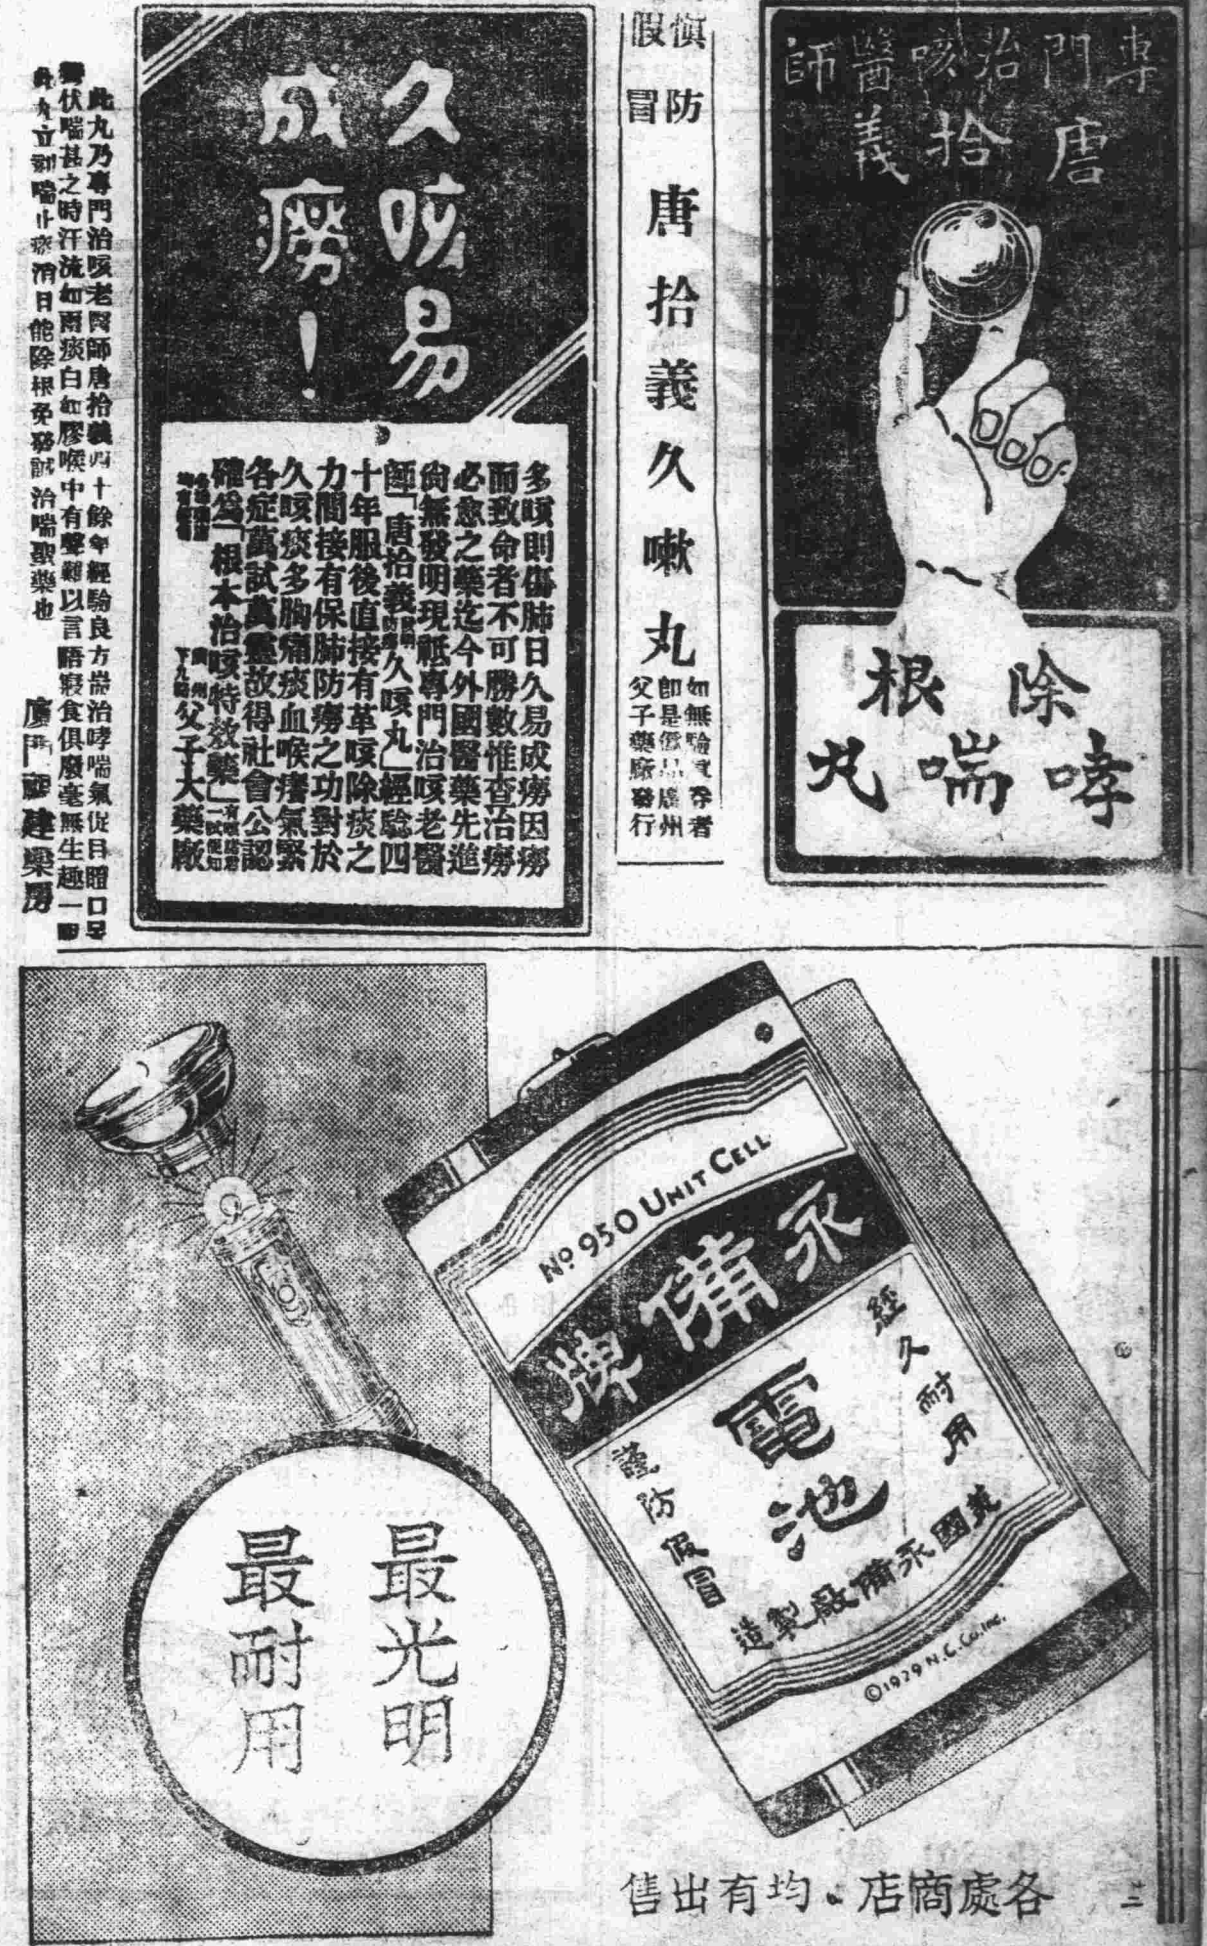 專門治咳醫師
唐拾義
除根
哮喘丸
慎防
假冒
唐拾義久嗽丸
如無驗真券者
即是僞品廣州
父子藥廠發行
久咳易
成癆！
多咳則傷肺日久易成癆因癆
而致命者不可勝數惟查治癆
必愈之藥迄今外國醫藥先進
尙無發明現祗專門治咳老醫
師「唐拾義久咳丸」經驗四
十年服後直接有革咳除痰之
力間接有保肺防癆之功對於
久咳痰多胸痛痰血喉癢氣緊
各症萬試萬靈故得社會公認
確爲「根本治咳特效藥」
廣州
下九甫
父子大藥廠
此丸乃專門治咳老醫師唐拾義四十餘年經驗良方耑治哮喘氣促目瞪口呆
伏喘甚之時汗流如雨痰白如膠喉中有聲難以言語寢食俱廢毫無生趣一服
此丸立刻喘止痰消日能除根免發誠治喘聖藥也
建樂房
No 950 UNIT CELL
永備牌
電池
經久耐用
謹防假冒
美國永備廠製造
©1929 N.C.Co.Inc.
最光明
最耐用
各處商店、均有出售
二